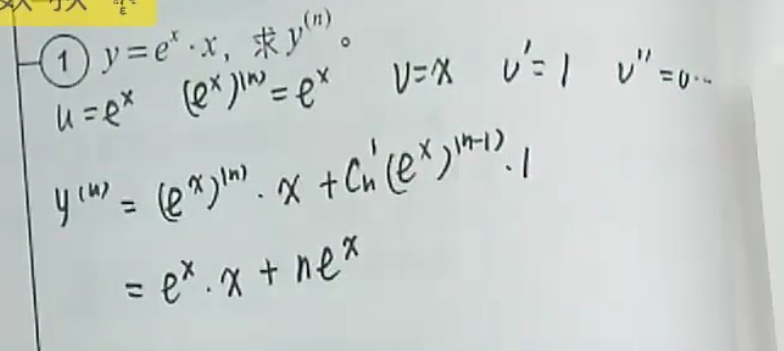 ① y=eˣ·x, 求y⁽ⁿ⁾。
u=eˣ (eˣ)⁽ⁿ⁾=eˣ v=x v'=1 v''=0...
y⁽ⁿ⁾=(eˣ)⁽ⁿ⁾·x+Cₙ¹(eˣ)⁽ⁿ⁻¹⁾·1
=eˣ·x+neˣ